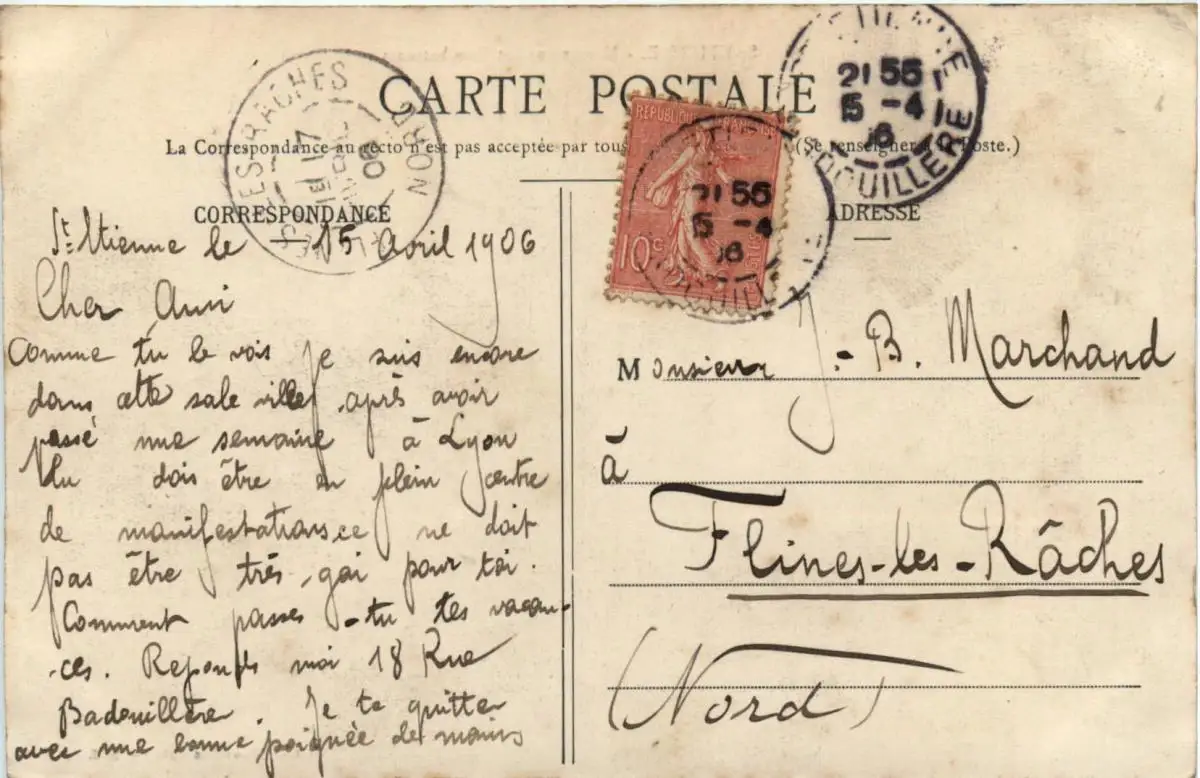 CARTE POSTALE
La Correspondance au recto n'est pas acceptée par tous (Se renseigner à la Poste.)
CORRESPONDANCE
St Etienne le 15 Avril 1906
Cher Ami
Comme tu le vois je suis encore
dans cette sale ville après avoir
passé une semaine à Lyon
Tu dois être en plein centre
de manifestations. ce ne doit
pas être très gai pour toi.
Comment passes-tu tes vacan-
-ces. Reponds moi 18 Rue
Badouillère. Je te quitte
avec une bonne poignée de mains
ADRESSE
Monsieur J.-B. Marchand
à
Flines-les-Râches
(Nord)
REPUBLIQUE FRANÇAISE
10c
POSTES
21 55
15 -4
06
21 55
15 -4
06
BADOUILLERE
FLINES-LES-RACHES
NORD
06